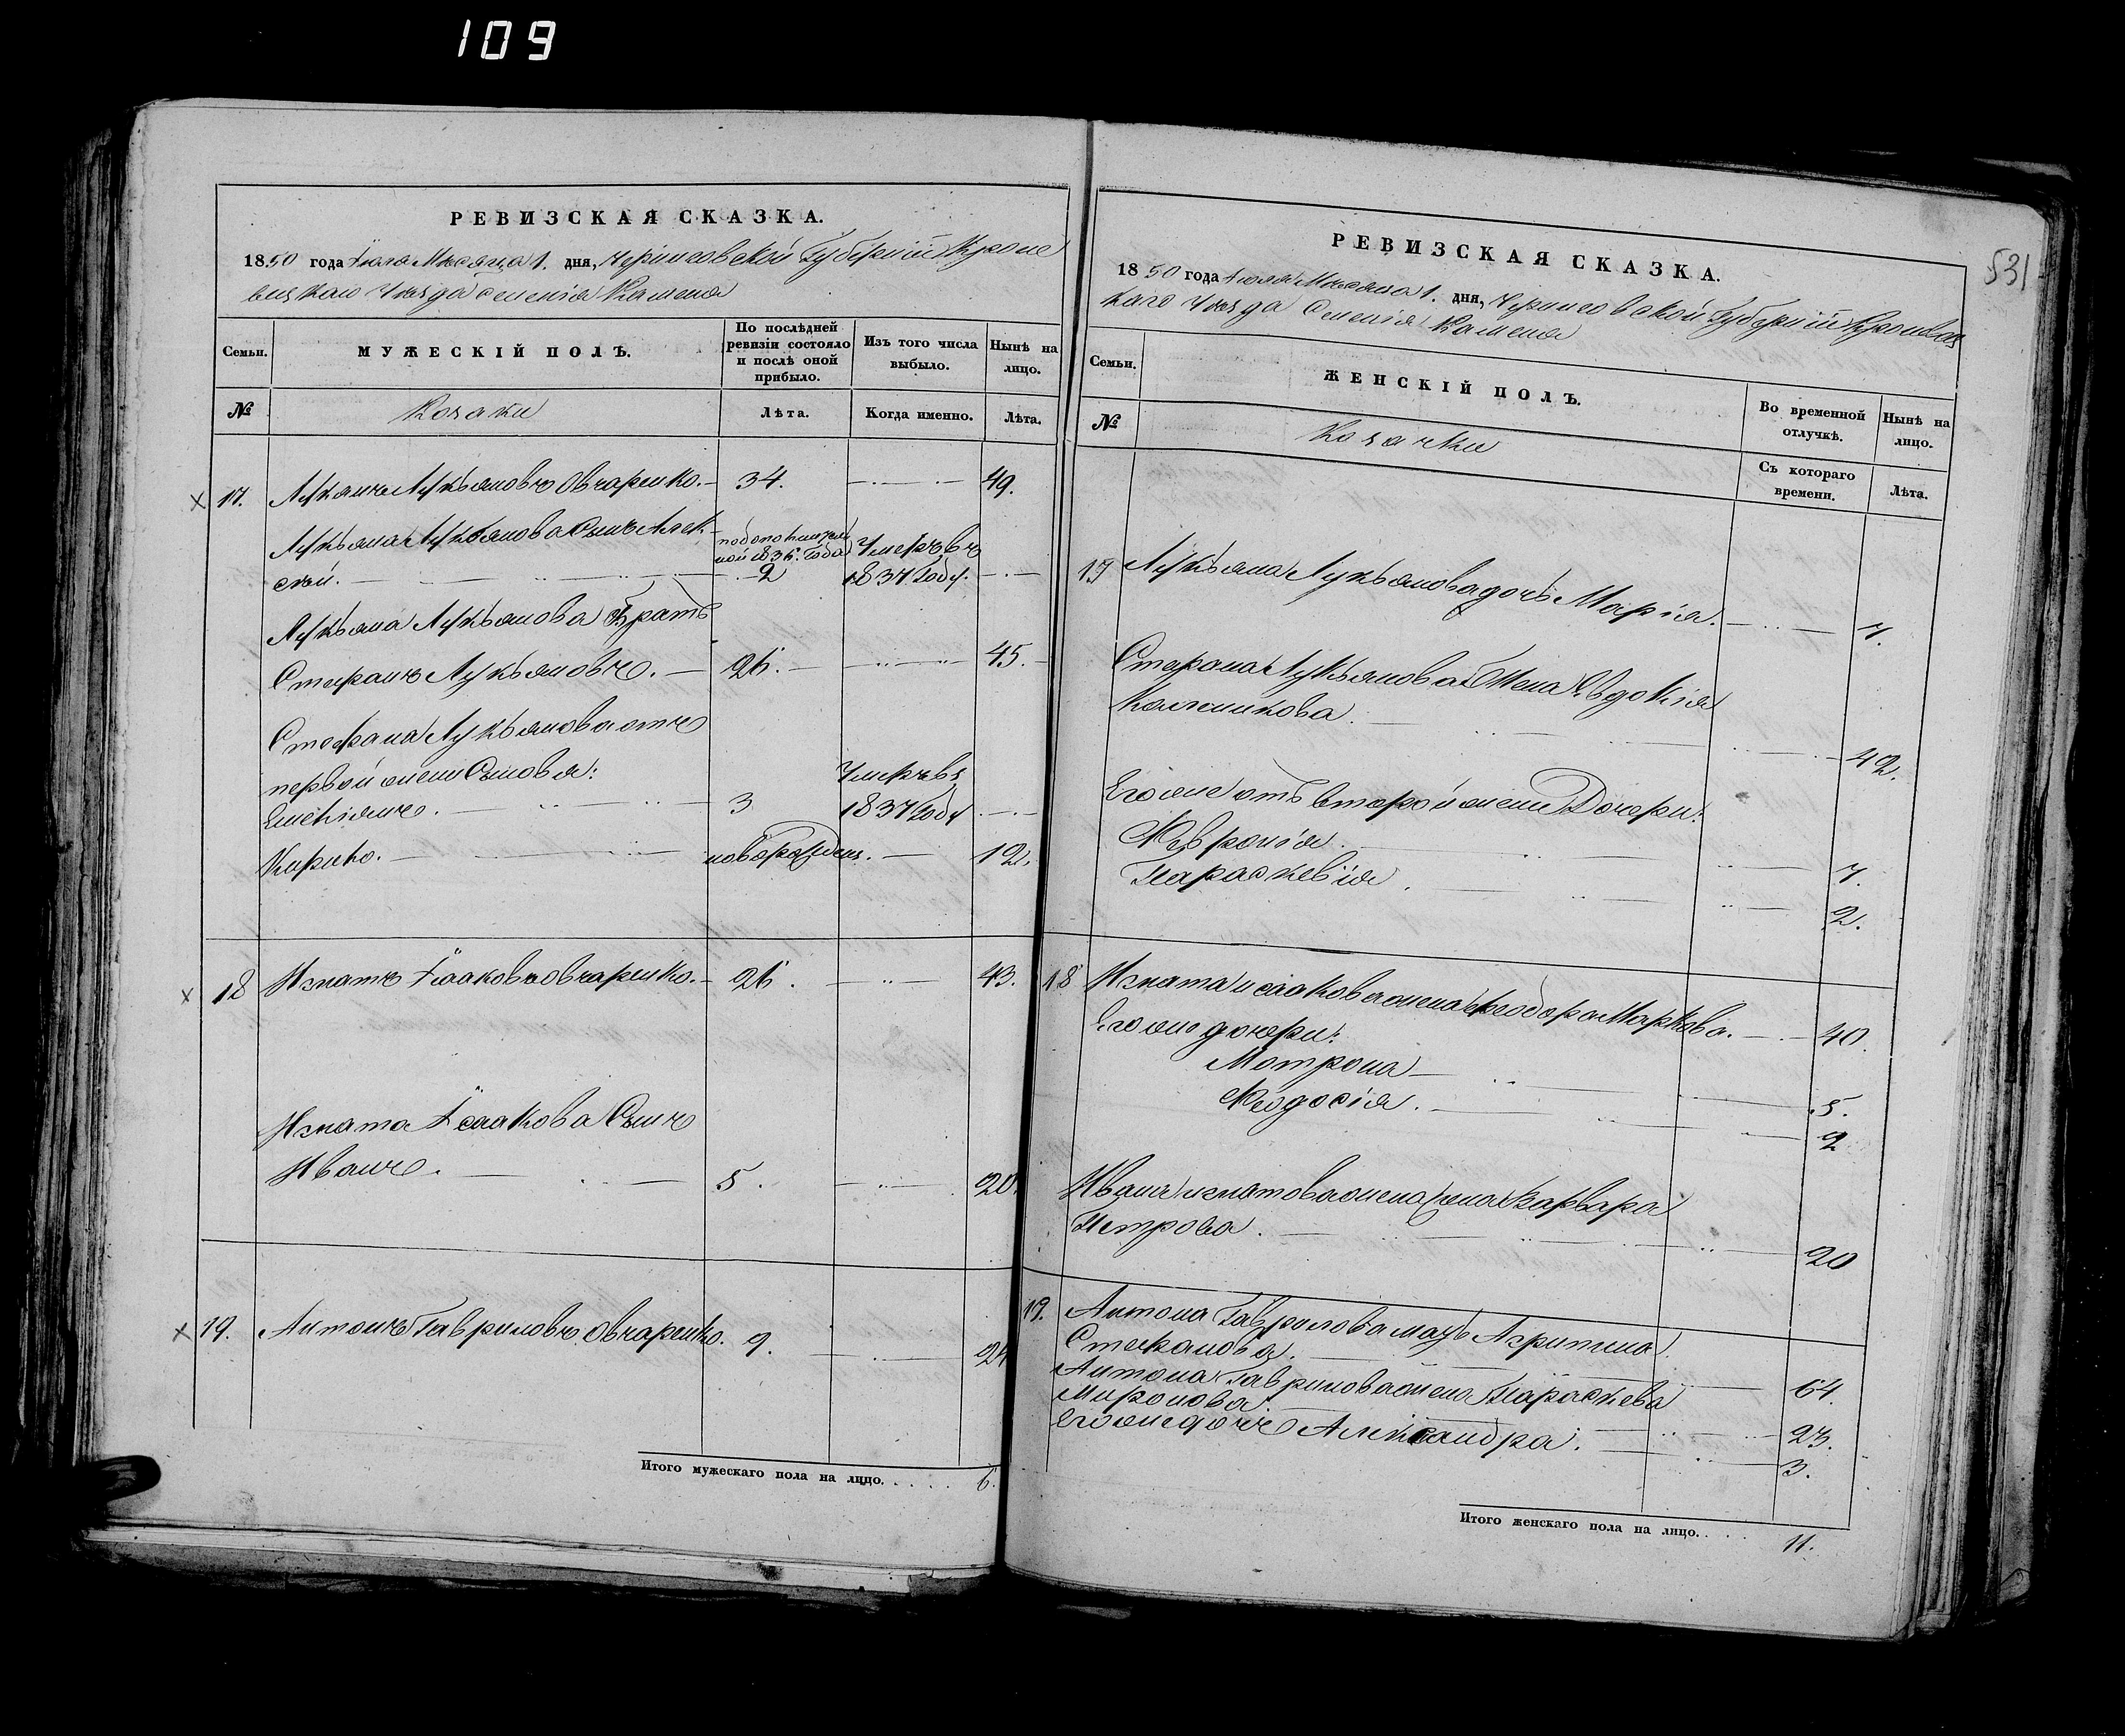 109
РЕВИЗСКАЯ СКАЗКА.
1850 года Іюля Мѣсяца 1. дня, Черниговской Губерніи Кроле
вецкаго Уѣзда селенія Каменя
Семьи.
МУЖЕСКІЙ ПОЛЪ.
По послѣдней ревизіи состояло и послѣ оной прибыло.
Изъ того числа выбыло.
Нынѣ на лицо.
№
Козаки
Лѣта.
Когда именно.
Лѣта.
17. Лукьянъ Лукьяновъ Овчаренко. 34. 49.
Лукьяна Лукьянова Сынъ Алек
сѣй. по дополнитель ной 1836. Года 2 Умеръ въ 1837 Году.
Лукьяна Лукьянова Братъ
Стефанъ Лукьяновъ. 26. 45.
Стефана Лукьянова отъ
первой жены Сыновья:
3 Умеръ въ 1837 Году
Кирило. новорожден. 12.
18 Игнатъ Ісааковъ Овчаренко. 26. 43.
Игната Ісаакова Сынъ
Иванъ. 5. 20.
19. Антонъ Гавриловъ Овчаренко. 9. 24
Итого мужескаго пола на лицо. . . . . 6.
531
РЕВИЗСКАЯ СКАЗКА.
1850 года Іюля Мѣсяца 1. дня, Черниговской Губерніи Кролевец
каго Уѣзда Селенія Каменя
Семьи.
ЖЕНСКІЙ ПОЛЪ.
Во временной отлучкѣ.
Нынѣ на лицо.
№
Козачки
Съ котораго времени.
Лѣта.
17 Лукьяна Лукьянова дочь Марія. 7.
Стефана Лукьянова Жена Евдокія
Калешикова. 42.
Его же отъ второй жены Дочери:
Февронія. 7.
Параскевія. 2.
18 Игната исаакова жена Феодора Маркова. 40.
Его же дочери:
Матрона 5.
Феодосія. 2
Ивана игнатова жена Варвара
Петрова. 20
19. Антона Гаврилова мать Агрипина
Стефанова. 64.
Антона Гаврилова жена Параскева
Миронова. 23.
Его же дочь Александра. 3.
Итого женскаго пола на лицо. . . . 11.